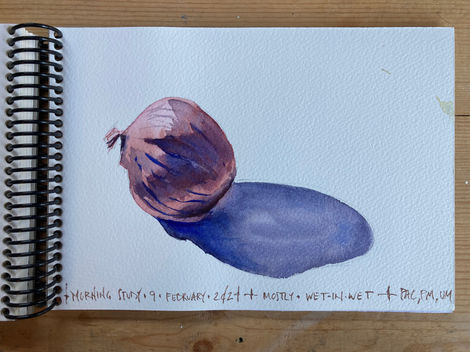 + MORNING STUDY • 9 • FEBRUARY • 2021 + MOSTLY • WET-IN-WET + PAC, PM, UM